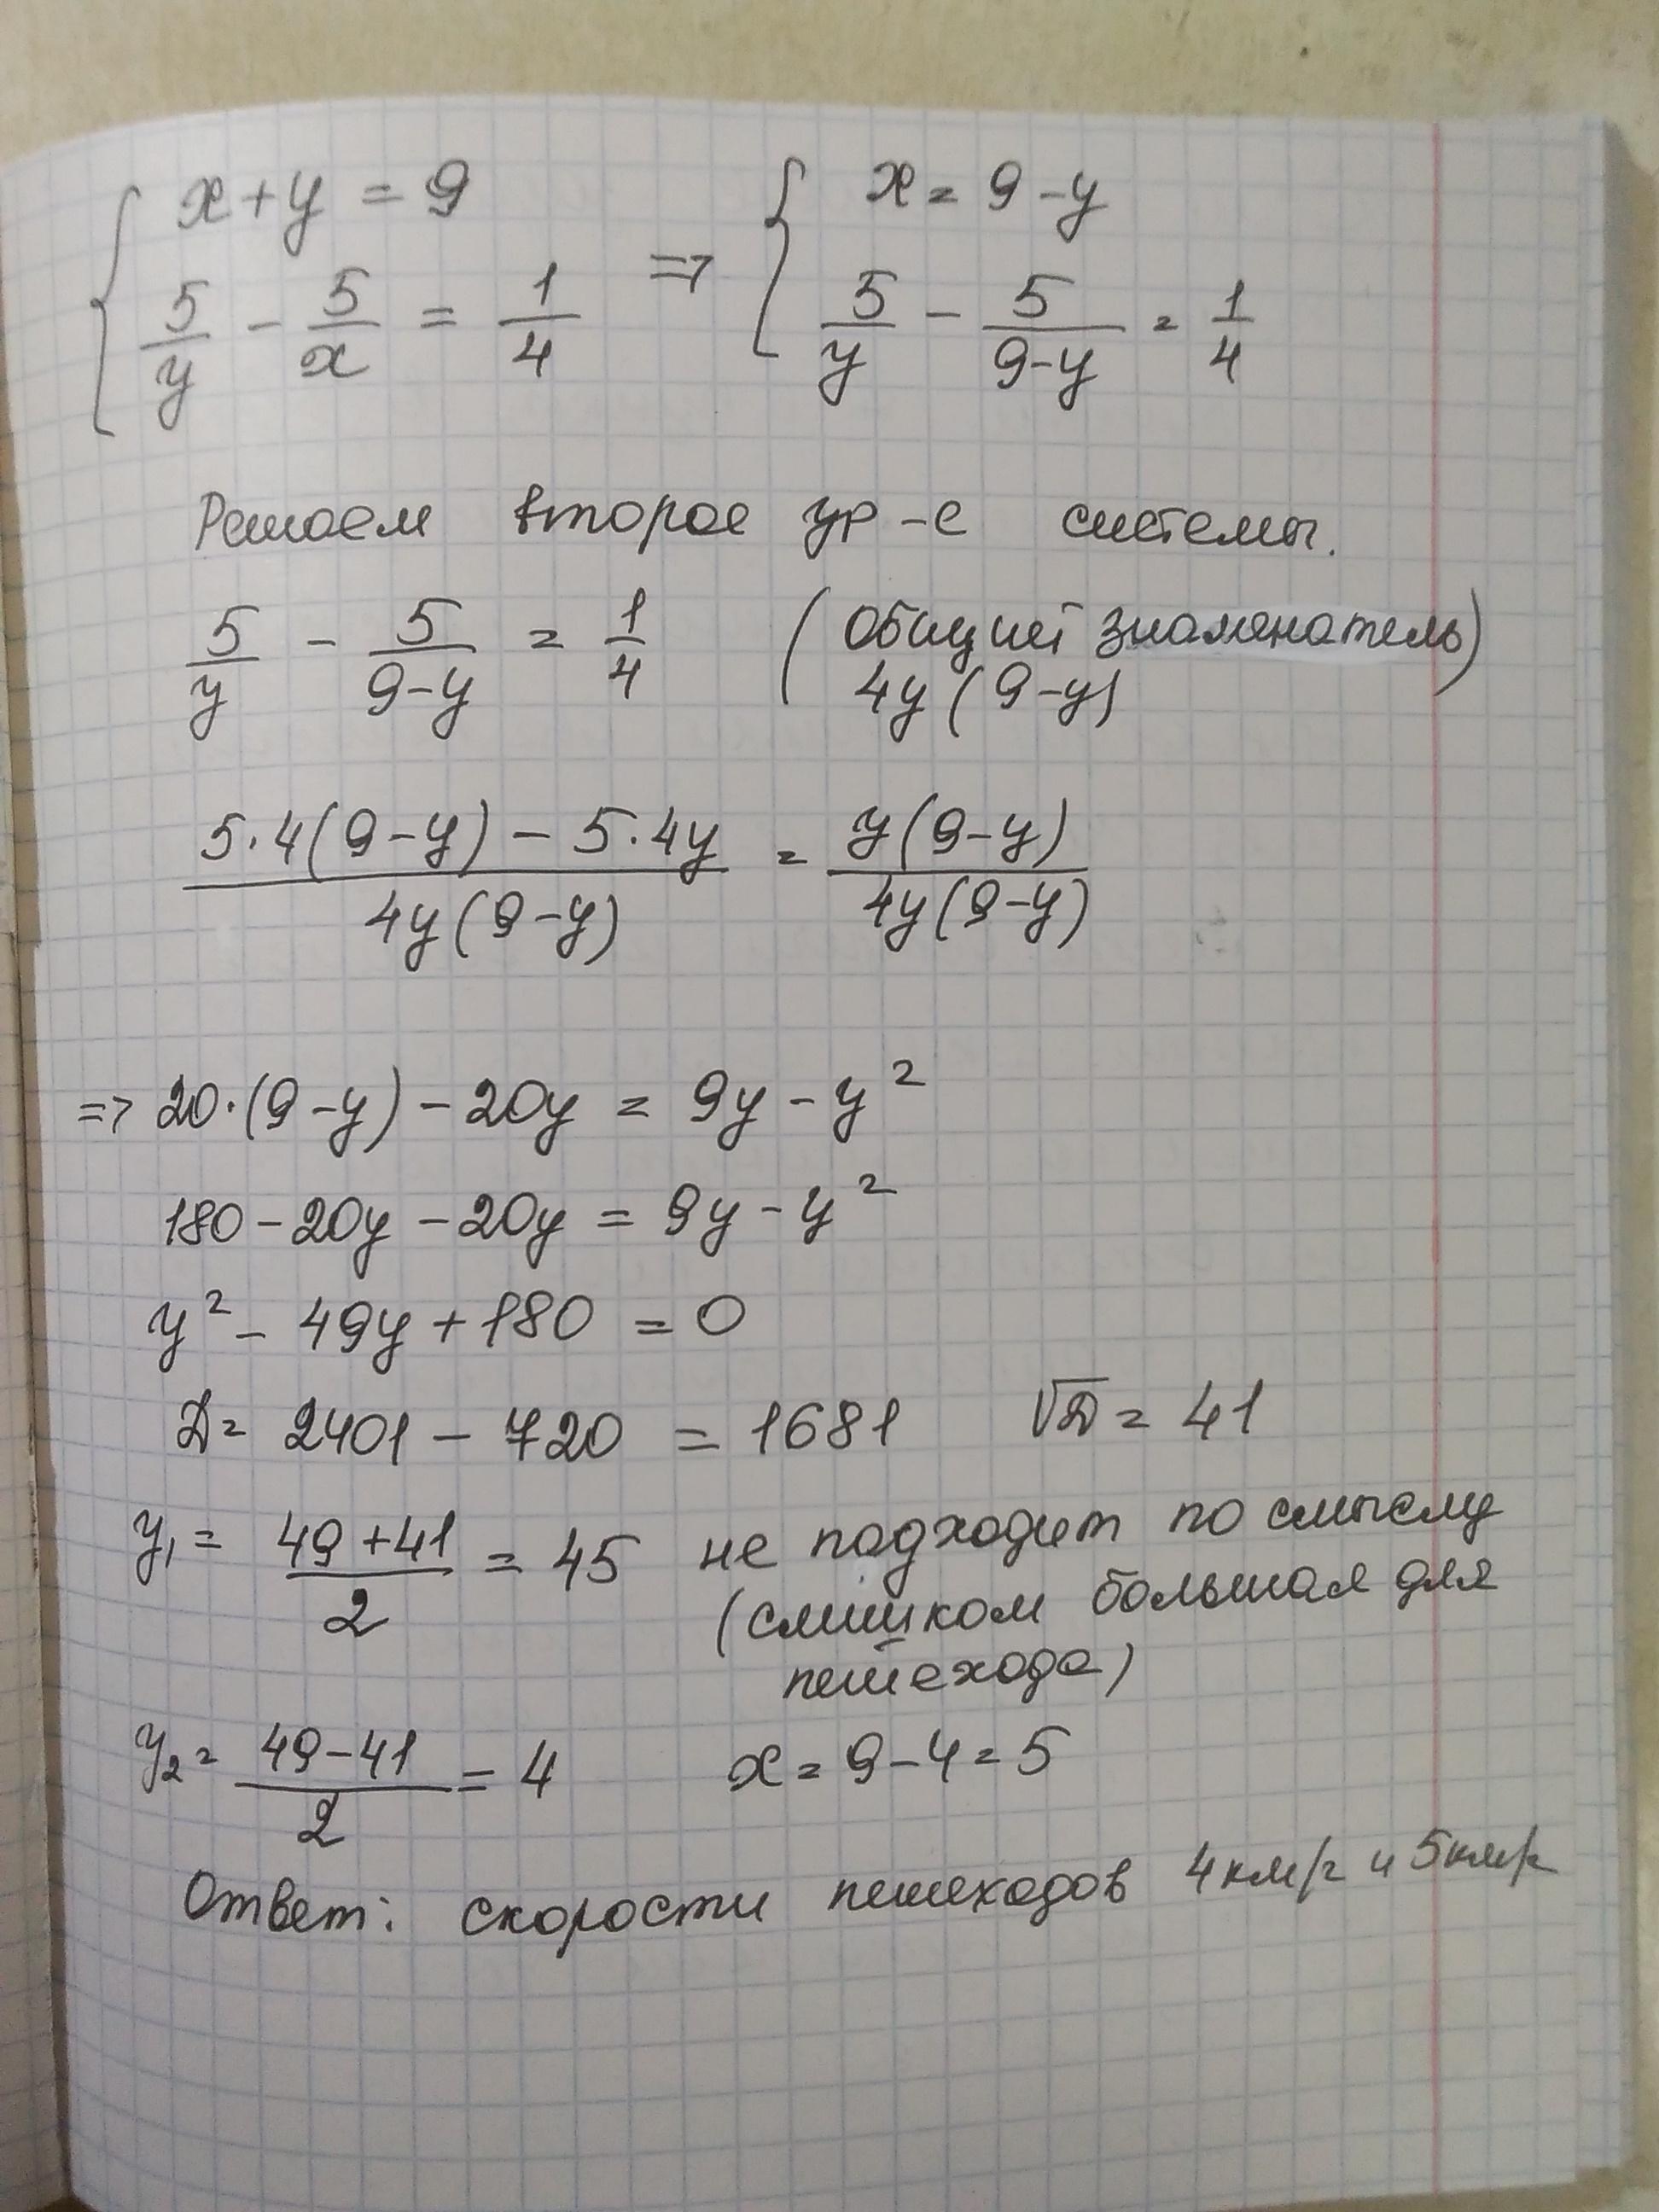 { x + y = 9 => { x = 9 - y
5/y - 5/x = 1/4 5/y - 5/(9-y) = 1/4
Решаем второе ур-е системы.
5/y - 5/(9-y) = 1/4 (Общий знаменатель)
4y(9-y)
(5·4(9-y) - 5·4y)/(4y(9-y)) = y(9-y)/(4y(9-y))
=> 20·(9-y) - 20y = 9y - y²
180 - 20y - 20y = 9y - y²
y² - 49y + 180 = 0
D = 2401 - 720 = 1681 √D = 41
y₁ = (49+41)/2 = 45 не подходит по смыслу
(слишком большая для
пешехода)
y₂ = (49-41)/2 = 4 x = 9 - 4 = 5
Ответ: скорости пешеходов 4 км/ч и 5 км/ч